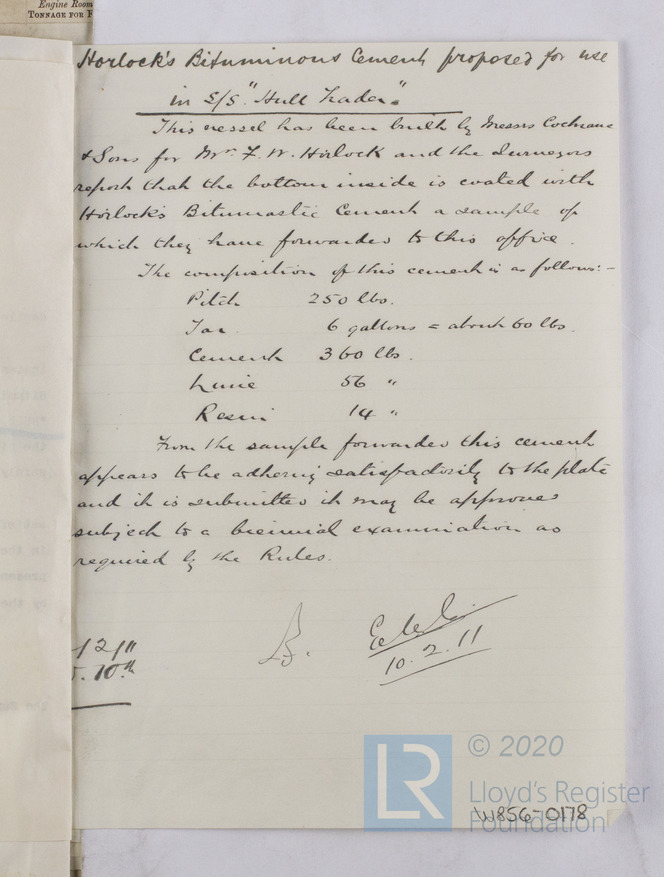 Engine Room
TONNAGE FOR
Horlock's Bituminous Cement proposed for use
in S/S "Hull Trader"
This vessel has been built by Messrs Cochrane
& Sons for Mr. F. W. Horlock and the Surveyors
report that the bottom inside is coated with
Horlock's Bitumastic Cement a sample of
which they have forwarded to this office.
The composition of this cement is as follows:-
Pitch 250 lbs.
Tar 6 gallons = about 60 lbs.
Cement 360 lbs.
Lime 56 "
Resin 14 "
From the sample forwarded this cement
appears to be adhering satisfactorily to the plate
and it is submitted it may be approved
subject to a biennial examination as
required by the Rules.
10.2.11
LR
© 2020
Lloyd's Register
Foundation
W856-0178